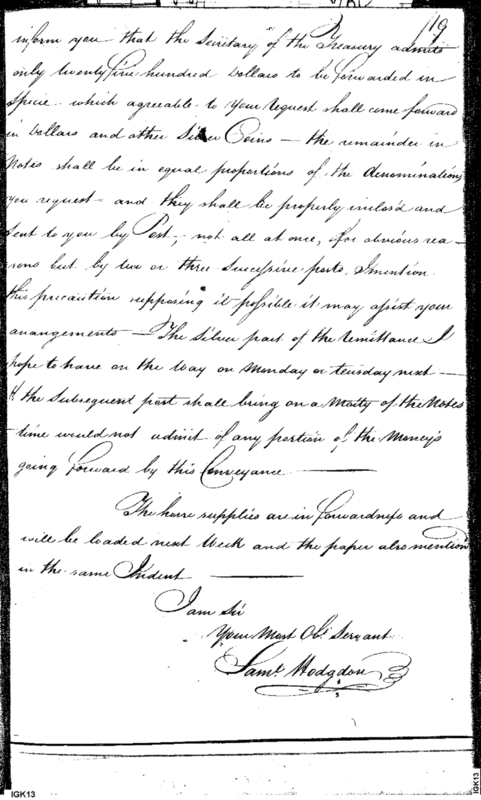 19
inform you that the Secretary of the Treasury admits
only twenty five hundred Dollars to be forwarded in
Specie which agreeable to your request shall come forward
in Dollars and other Silver Coins — the remainder in
Notes shall be in equal proportions of the denominations
you request – and they shall be properly inclos'd and
sent to you by Post, – not all at once, for obvious rea
sons but by two or three Successive posts, I mention
this precaution supposing it possible it may assist your
arrangements — The Silver part of the remittance I
hope to have on the way on Monday or tuesday next —
& the Subsequent post shall bring on a Moity of the Notes
– time would not admit of any portion of the Money's
going forward by this Conveyance ———
The horse supplies are in forwardness and
will be loaded next Week and the paper also mention
in the same Indent ———
I am Sir
Your Most Obt Servant
Saml Hodgdon
IGK13
IGK13